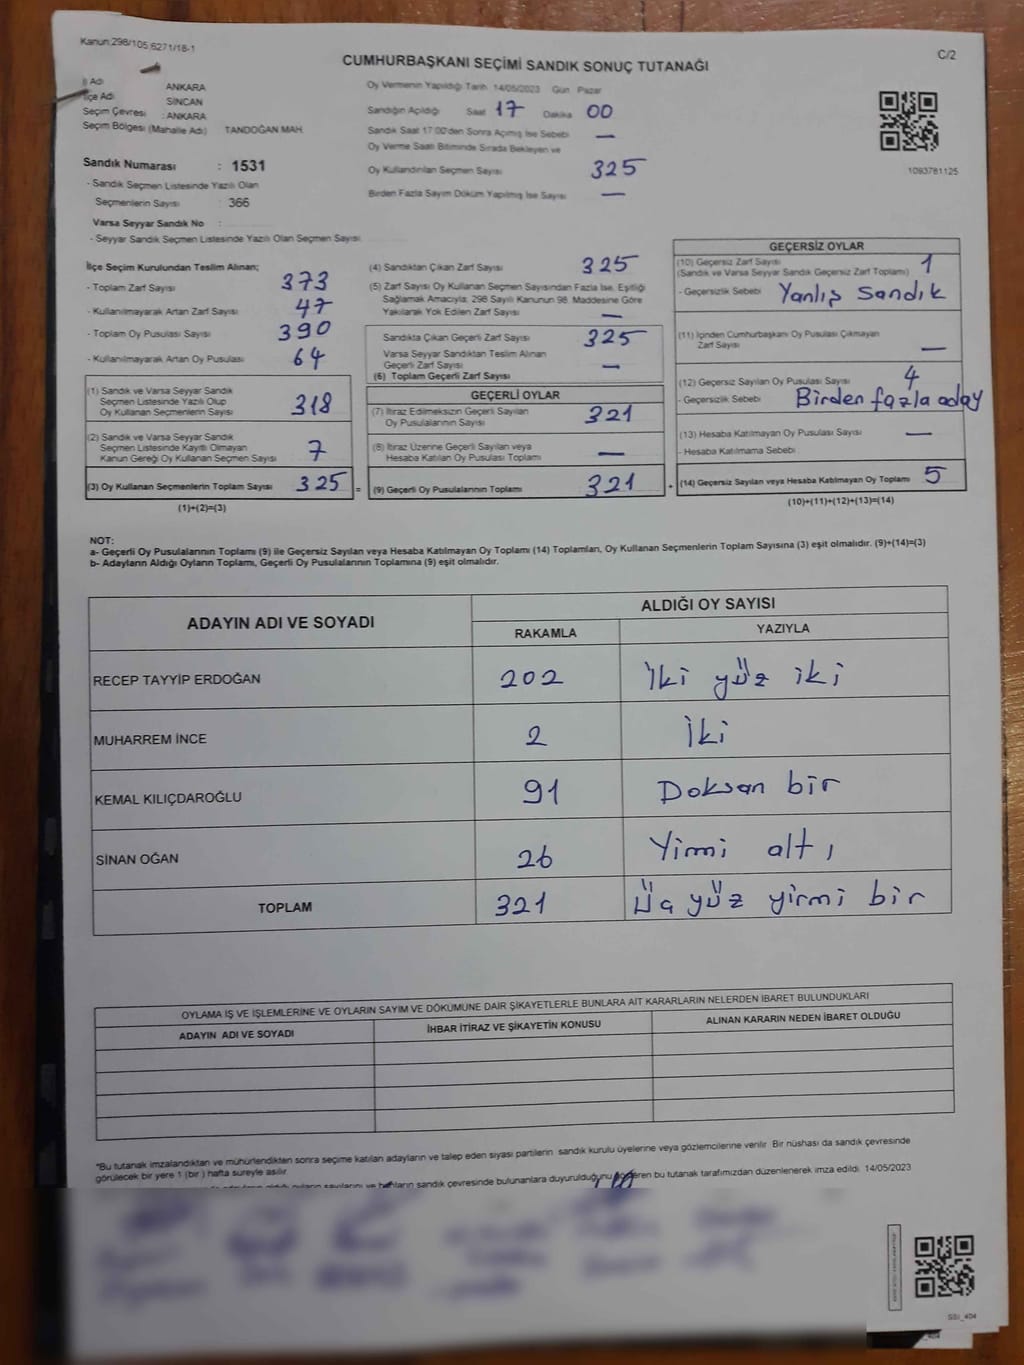 Kanun:298/105;6271/18-1
C/2
CUMHURBAŞKANI SEÇİMİ SANDIK SONUÇ TUTANAĞI
İl Adı ANKARA
İlçe Adı SİNCAN
Seçim Çevresi : ANKARA
Seçim Bölgesi (Mahalle Adı) TANDOĞAN MAH.
Sandık Numarası : 1531
- Sandık Seçmen Listesinde Yazılı Olan
Seçmenlerin Sayısı : 366
Varsa Seyyar Sandık No :
- Seyyar Sandık Seçmen Listesinde Yazılı Olan Seçmen Sayısı
Oy Vermenin Yapıldığı Tarih 14/05/2023 Gün Pazar
Sandığın Açıldığı Saat 17 Dakika 00
Sandık Saat 17:00'den Sonra Açılmış İse Sebebi —
Oy Verme Saati Bitiminde Sırada Bekleyen ve
Oy Kullandırılan Seçmen Sayısı 325
Birden Fazla Sayım Döküm Yapılmış İse Sayısı —
1093781125
İlçe Seçim Kurulundan Teslim Alınan;
- Toplam Zarf Sayısı 373
- Kullanılmayarak Artan Zarf Sayısı 47
- Toplam Oy Pusulası Sayısı 390
- Kullanılmayarak Artan Oy Pusulası 64
(1) Sandık ve Varsa Seyyar Sandık
Seçmen Listesinde Yazılı Olup
Oy Kullanan Seçmenlerin Sayısı 318
(2) Sandık ve Varsa Seyyar Sandık
Seçmen Listesinde Kayıtlı Olmayan
Kanun Gereği Oy Kullanan Seçmen Sayısı 7
(3) Oy Kullanan Seçmenlerin Toplam Sayısı 325 =
(1)+(2)=(3)
(4) Sandıktan Çıkan Zarf Sayısı 325
(5) Zarf Sayısı Oy Kullanan Seçmen Sayısından Fazla İse, Eşitliği
Sağlamak Amacıyla; 298 Sayılı Kanunun 98. Maddesine Göre
Yakılarak Yok Edilen Zarf Sayısı —
Sandıkta Çıkan Geçerli Zarf Sayısı 325
Varsa Seyyar Sandıktan Teslim Alınan
Geçerli Zarf Sayısı —
(6) Toplam Geçerli Zarf Sayısı
GEÇERLİ OYLAR
(7) İtiraz Edilmeksizin Geçerli Sayılan
Oy Pusulalarının Sayısı 321
(8) İtiraz Üzerine Geçerli Sayılan veya
Hesaba Katılan Oy Pusulası Toplamı —
(9) Geçerli Oy Pusulalarının Toplamı 321 +
GEÇERSİZ OYLAR
(10) Geçersiz Zarf Sayısı 1
(Sandık ve Varsa Seyyar Sandık Geçersiz Zarf Toplamı)
- Geçersizlik Sebebi Yanlış Sandık
(11) İçinden Cumhurbaşkanı Oy Pusulası Çıkmayan
Zarf Sayısı —
(12) Geçersiz Sayılan Oy Pusulası Sayısı 4
- Geçersizlik Sebebi Birden fazla aday
(13) Hesaba Katılmayan Oy Pusulası Sayısı —
- Hesaba Katılmama Sebebi
(14) Geçersiz Sayılan veya Hesaba Katılmayan Oy Toplamı 5
(10)+(11)+(12)+(13)=(14)
NOT:
a- Geçerli Oy Pusulalarının Toplamı (9) ile Geçersiz Sayılan veya Hesaba Katılmayan Oy Toplamı (14) Toplamları, Oy Kullanan Seçmenlerin Toplam Sayısına (3) eşit olmalıdır. (9)+(14)=(3)
b- Adayların Aldığı Oyların Toplamı, Geçerli Oy Pusulalarının Toplamına (9) eşit olmalıdır.
ADAYIN ADI VE SOYADI ALDIĞI OY SAYISI
RAKAMLA YAZIYLA
RECEP TAYYİP ERDOĞAN 202 İki yüz iki
MUHARREM İNCE 2 İki
KEMAL KILIÇDAROĞLU 91 Doksan bir
SİNAN OĞAN 26 Yirmi altı
TOPLAM 321 Üç yüz yirmi bir
OYLAMA İŞ VE İŞLEMLERİNE VE OYLARIN SAYIM VE DÖKÜMÜNE DAİR ŞİKAYETLERLE BUNLARA AİT KARARLARIN NELERDEN İBARET BULUNDUKLARI
ADAYIN ADI VE SOYADI İHBAR İTİRAZ VE ŞİKAYETİN KONUSU ALINAN KARARIN NEDEN İBARET OLDUĞU
*Bu tutanak imzalandıktan ve mühürlendikten sonra seçime katılan adayların ve talep eden siyasi partilerin sandık kurulu üyelerine veya gözlemcilerine verilir. Bir nüshası da sandık çevresinde
görülecek bir yere 1 (bir) hafta süreyle asılır.
sandık çevresinde bulunanlara duyurulduğunu gösteren bu tutanak tarafımızdan düzenlenerek imza edildi. 14/05/2023
SSI_404